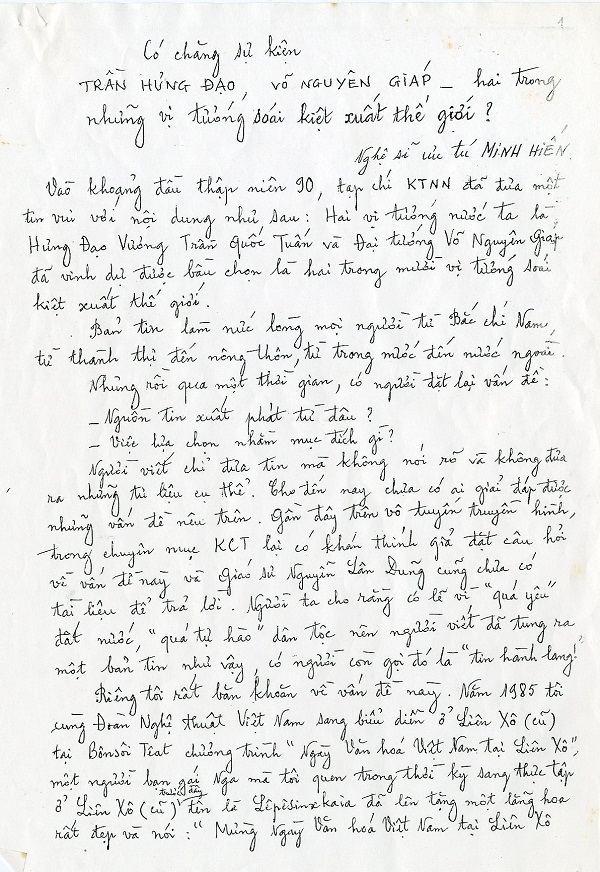 1
Có chăng sự kiện
TRẦN HƯNG ĐẠO, VÕ NGUYÊN GIÁP _ hai trong
những vị tướng soái kiệt xuất thế giới ?
Nghệ sĩ ưu tú MINH HIẾN
Vào khoảng đầu thập niên 90, tạp chí KTNN đã đưa một
tin vui với nội dung như sau : Hai vị tướng nước ta là
Hưng Đạo Vương Trần Quốc Tuấn và Đại tướng Võ Nguyên Giáp
đã vinh dự được bầu chọn là hai trong mười vị tướng soái
kiệt xuất thế giới.
Bản tin làm nức lòng mọi người từ Bắc chí Nam,
từ thành thị đến nông thôn, từ trong nước đến nước ngoài.
Nhưng rồi qua một thời gian, có người đặt lại vấn đề :
_ Nguồn tin xuất phát từ đâu ?
_ Việc lựa chọn nhằm mục đích gì ?
Người viết chỉ đưa tin mà không nói rõ và không đưa
ra những tư liệu cụ thể. Cho đến nay chưa có ai giải đáp được
những vấn đề nêu trên. Gần đây trên vô tuyến truyền hình,
trong chuyên mục KCT lại có khán thính giả đặt câu hỏi
về vấn đề này và Giáo sư Nguyễn Lân Dũng cũng chưa có
tài liệu để trả lời. Người ta cho rằng có lẽ vì "quá yêu"
đất nước, "quá tự hào" dân tộc nên người viết đã tung ra
một bản tin như vậy, có người còn gọi đó là "tin hành lang!"
Riêng tôi rất băn khoăn về vấn đề này. Năm 1985 tôi
cùng Đoàn Nghệ thuật Việt Nam sang biểu diễn ở Liên Xô (cũ)
tại Bônsôi Têat chương trình "Ngày Văn hoá Việt Nam tại Liên Xô",
một người bạn gái Nga mà tôi quen trong thời kỳ sang thực tập
ở Liên Xô (cũ) trước đây tên là Lêpisinxkaia đã lên tặng một lẵng hoa
rất đẹp và nói : "Mừng Ngày Văn hoá Việt Nam tại Liên Xô